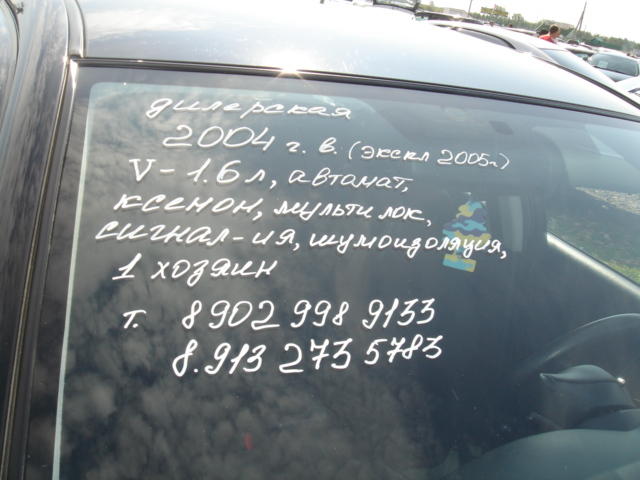 дилерская
2004 г. в. (экспл 2005г)
V-1.6 л, автомат,
ксенон, мультилок,
сигнал-ия, шумоизоляция,
1 хозяин
т. 8902 998 9133
8.913 273 5783